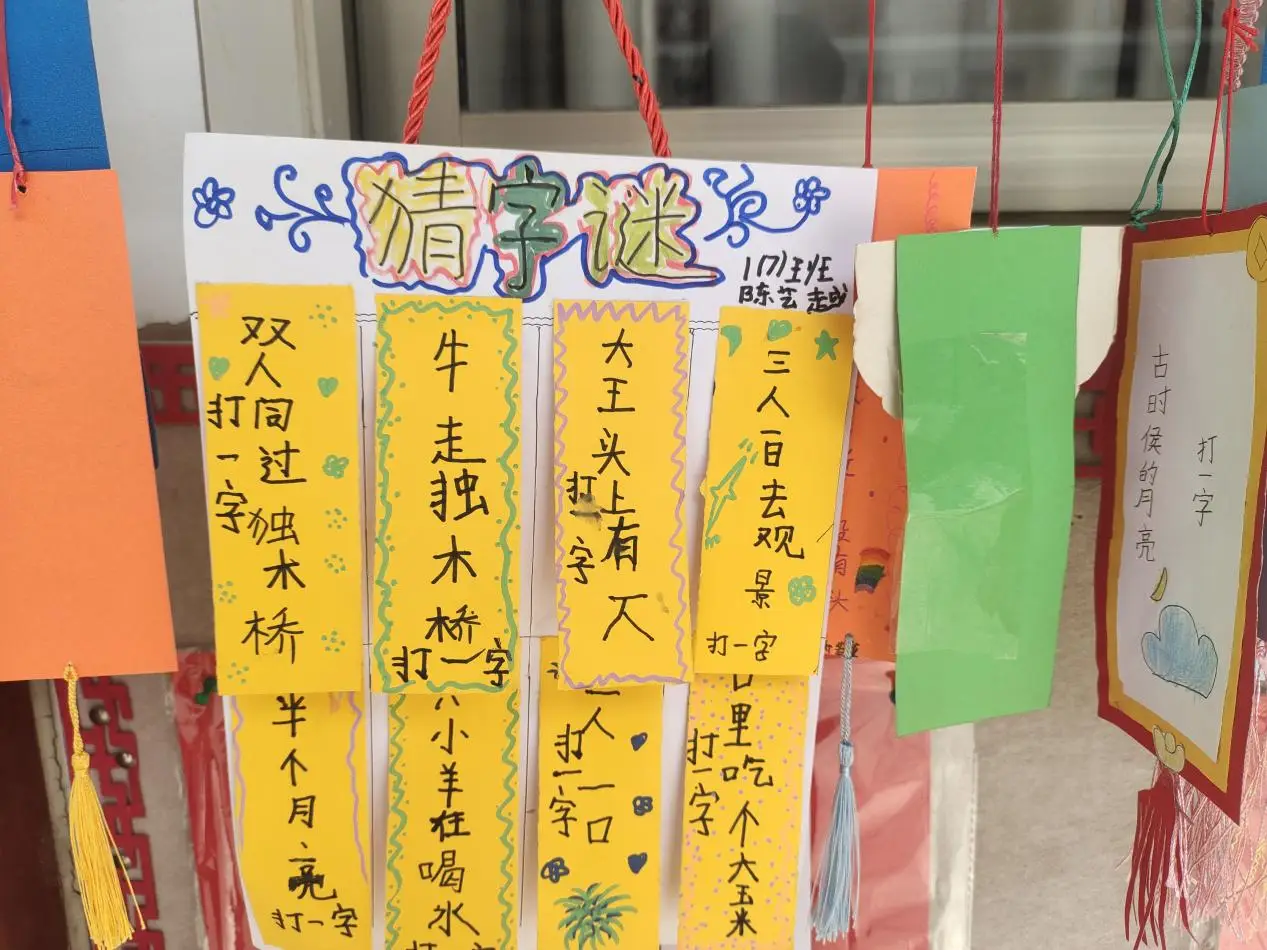 猜字谜
1(7)班
陈艺越
双人同过独木桥
打一字
牛走独木桥
打一字
大王头上有一人
打一字
三人一日去观景
打一字
半个月亮
打一字
小羊在喝水
打一字
一人一口
打一字
口里吃个大玉米
打一字
没有头
古时侯的月亮
打一字